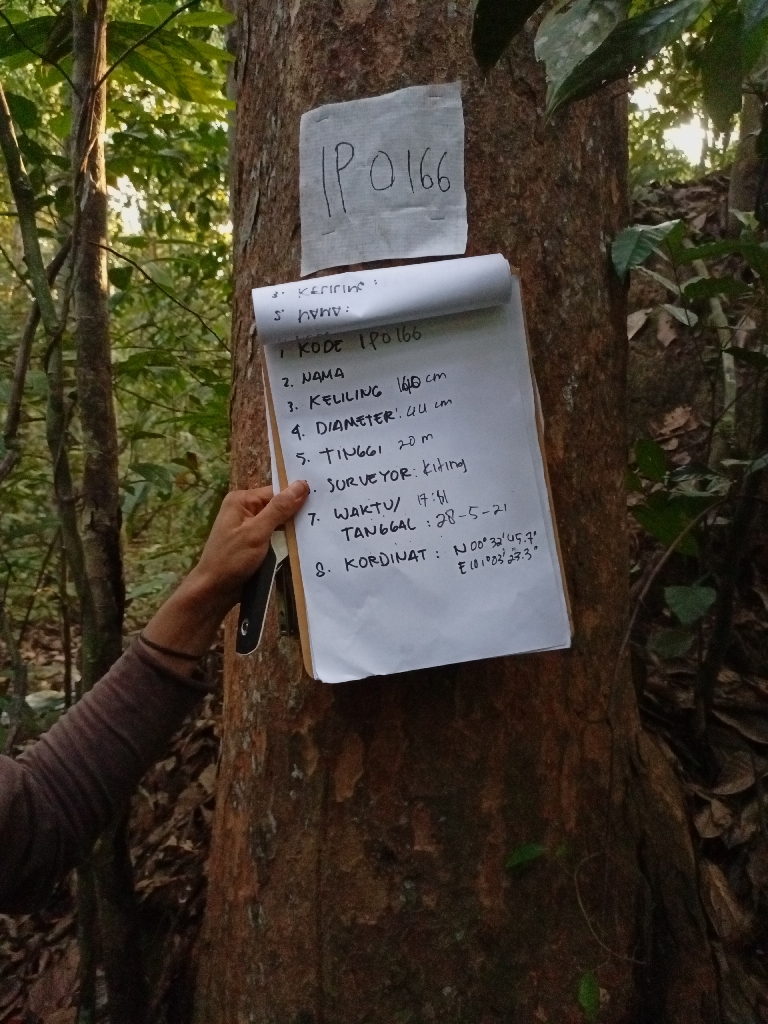 IP 0166
3. KELILING :
5. NAMA :
1. KODE IP0166
2. NAMA
3. KELILING 140 cm
4. DIAMETER : 44 cm
5. TINGGI 20 m
. SURVEYOR : Kiting
7. WAKTU/
TANGGAL : 28-5-21
8. KORDINAT : N 00° 32' 45.7"
E 101° 03' 23.3"